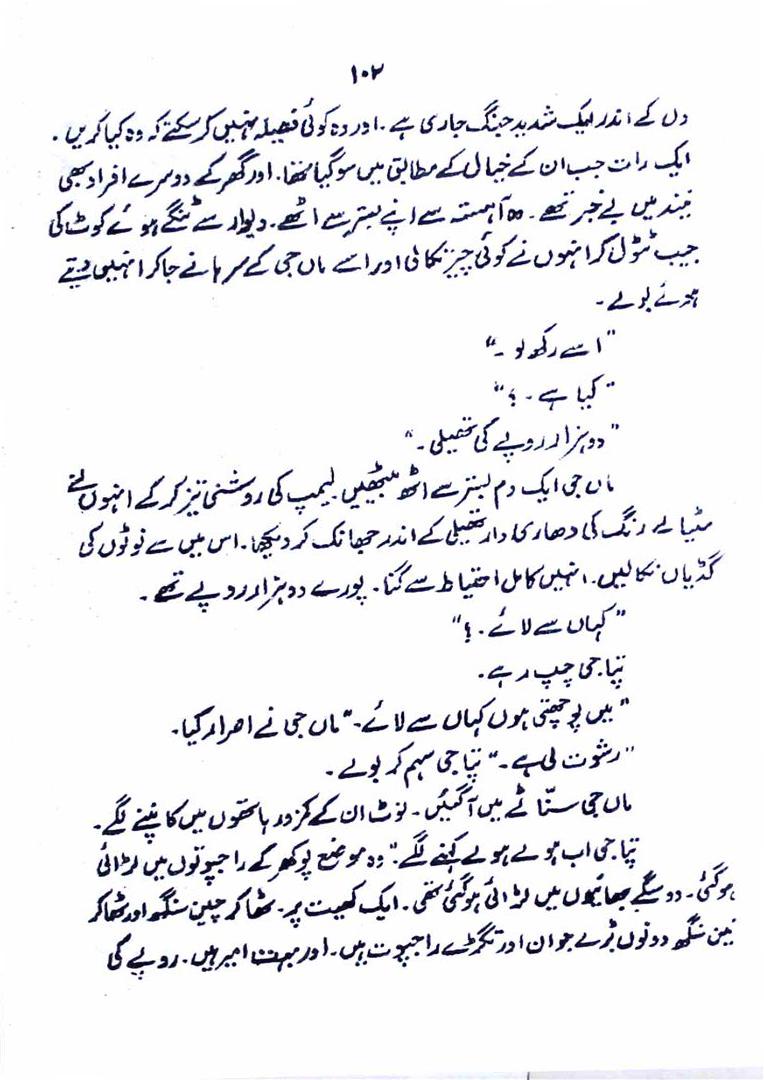 ۱۰۲
دل کے اندر ایک شدید جنگ جاری ہے ۔ اور وہ کوئی فیصلہ نہیں کر سکتے کہ وہ کیا کریں ۔
ایک رات جب ان کے خیال کے مطابق میں سو گیا تھا۔ اور گھر کے دوسرے افراد بھی
نیند میں بے خبر تھے ۔ وہ آہستہ سے اپنے بستر سے اٹھے ۔ دیوار سے ٹنگے ہوئے کوٹ کی
جیب ٹٹول کر انہوں نے کوئی چیز نکالی اور اسے ماں جی کے سرہانے جا کر انہیں دیتے
ہوئے بولے ۔
"اسے رکھ لو ۔"
"کیا ہے ۔ ؟"
"دو ہزار روپے کی تھیلی ۔"
ماں جی ایک دم بستر سے اٹھ بیٹھیں۔ لیمپ کی روشنی تیز کر کے انہوں نے
مٹیالے رنگ کی دھاری دار تھیلی کے اندر جھانک کر دیکھا۔ اس میں سے نوٹوں کی
گڈیاں نکالیں۔ انہیں کامل احتیاط سے گنا۔ پورے دو ہزار روپے تھے ۔
"کہاں سے لائے ۔ ؟"
پتا جی چپ رہے ۔
"میں پوچھتی ہوں کہاں سے لائے ۔" ماں جی نے اصرار کیا۔
"رشوت لی ہے ۔" پتا جی سہم کر بولے ۔
ماں جی سنّاٹے میں آ گئیں ۔ نوٹ ان کے کمزور ہاتھوں میں کانپنے لگے ۔
پتا جی اب ہولے ہولے کہنے لگے ۔ "وہ موضع پوکھر کے راجپوتوں میں لڑائی
ہو گئی ۔ دو سگے بھائیوں میں لڑائی ہو گئی تھی ۔ ایک کھیت پر ۔ ٹھاکر چین سنگھ اور ٹھاکر
نین سنگھ دونوں بڑے جوان اور تگڑے راجپوت ہیں ۔ اور بہت امیر ہیں ۔ روپے کی